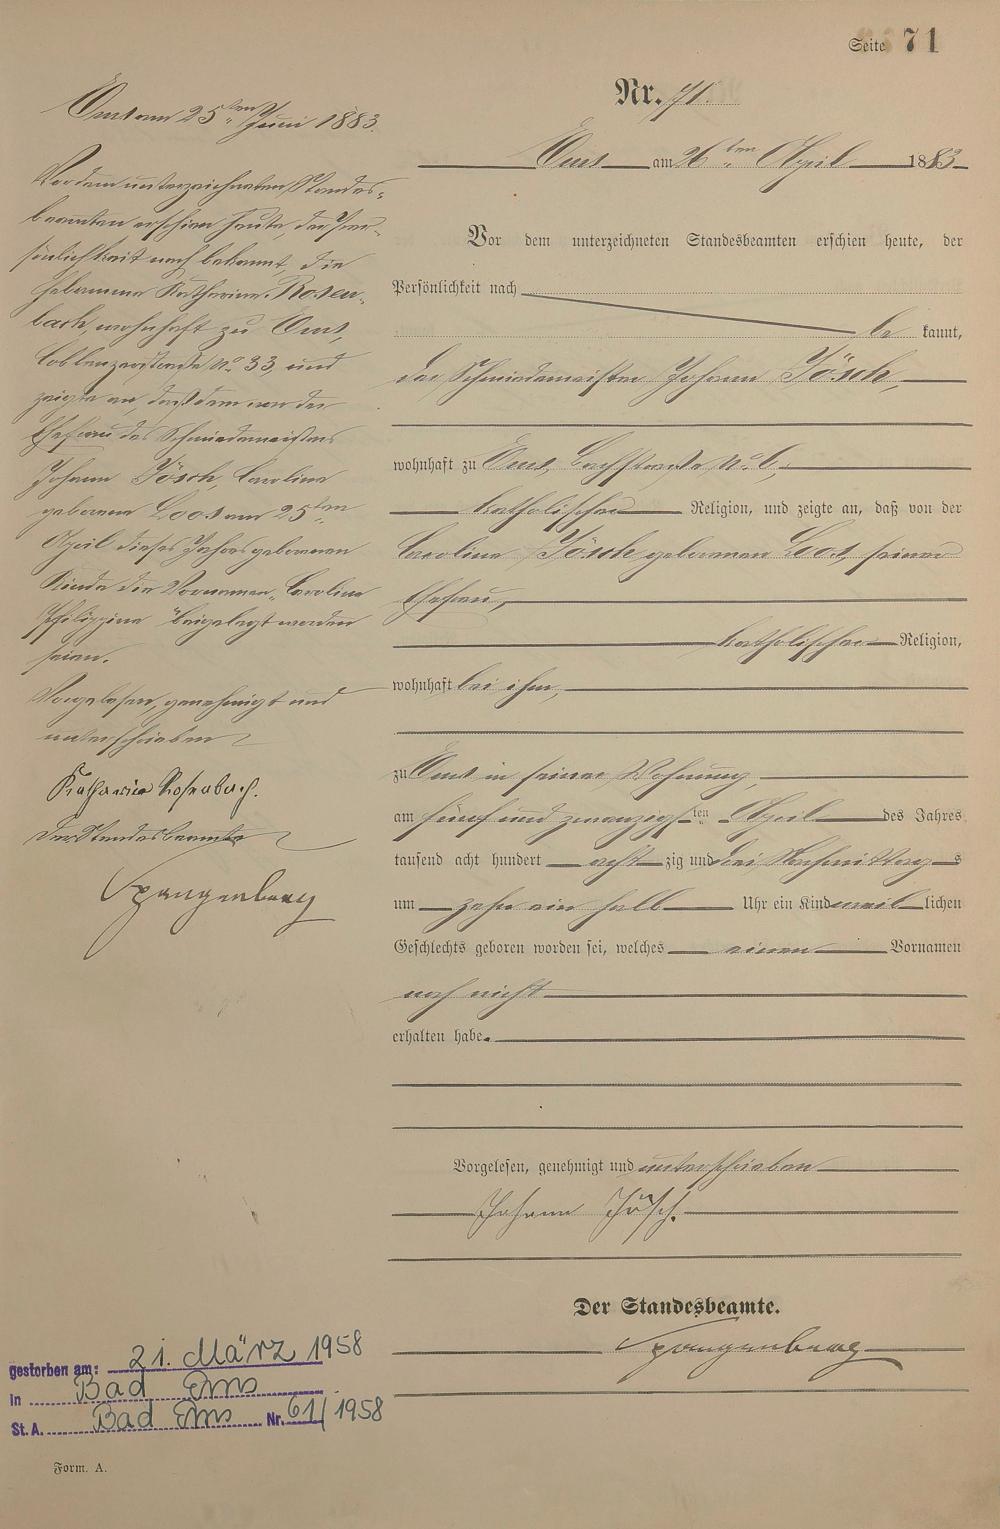 Seite 71
Nr. 71.
Ems am 26ten April 1883
Vor dem unterzeichneten Standesbeamten erschien heute, der
Persönlichkeit nach
be kannt,
der Schmiedemeister Johann Jösch
wohnhaft zu Ems, Bachstraße No. 6,
katholischer Religion, und zeigte an, daß von der
Caroline Jösch geborenen Loos, seiner
Ehefrau,
katholischer Religion,
wohnhaft bei ihm,
zu Ems in seiner Wohnung,
am fünf und zwanzigsten April des Jahres
tausend acht hundert acht zig und drei Nachmittags
um zehn ein halb Uhr ein Kind weiblichen
Geschlechts geboren worden sei, welches einen Vornamen
noch nicht
erhalten habe.
Vorgelesen, genehmigt und unterschrieben
Johann Jösch.
Der Standesbeamte.
Spangenberg
Ems am 25ten Juni 1883.
Vor dem unterzeichneten Standes-
beamten erschien heute, der Per-
sönlichkeit nach bekannt, die
Hebamme Katharina Rosen-
bach, wohnhaft zu Ems,
Coblenzerstraße No. 33, und
zeigte an, daß dem von der
Ehefrau des Schmiedemeisters
Johann Jösch, Caroline
geborenen Loos am 25ten
April dieses Jahres geborenen
Kinde die Vornamen „Caroline
Philippine" beigelegt worden
seien.
Vorgelesen, genehmigt und
unterschrieben
Katharina Rosenbach.
Der Standesbeamte
Spangenberg
gestorben am: 21. März 1958
in Bad Ems
St. A. Bad Ems Nr. 61/1958
Form. A.